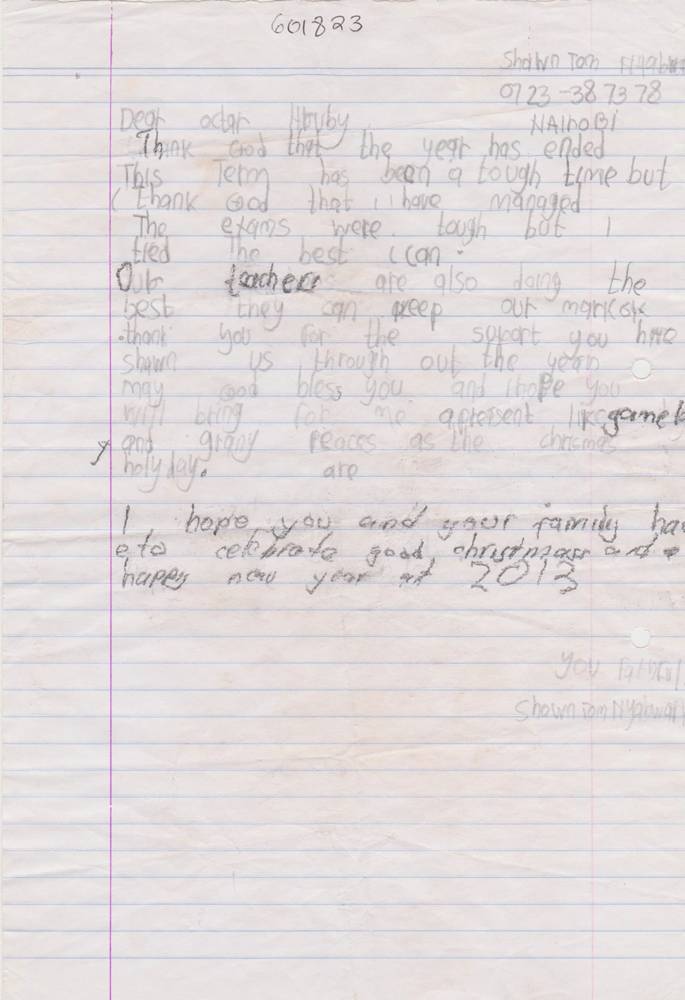 601823
Shawn Tom
0723-387378
NAIROBI
Dear octar Hruby
Thank God that the year has ended
This Term has been a tough time but
I thank God that i have managed
The exams were tough but I
tried The best i can.
Our teachers are also doing the
best they can keep our marks
thank you for the suport you have
shawn us through out the year
may God bless you and I hope you
will bring for me apresent like game
and grany peaces as the chrismas
holyday. are
I hope you and your family ha
e to celebrate good christmass and a
happy new year at 2013
you
Shawn Tom